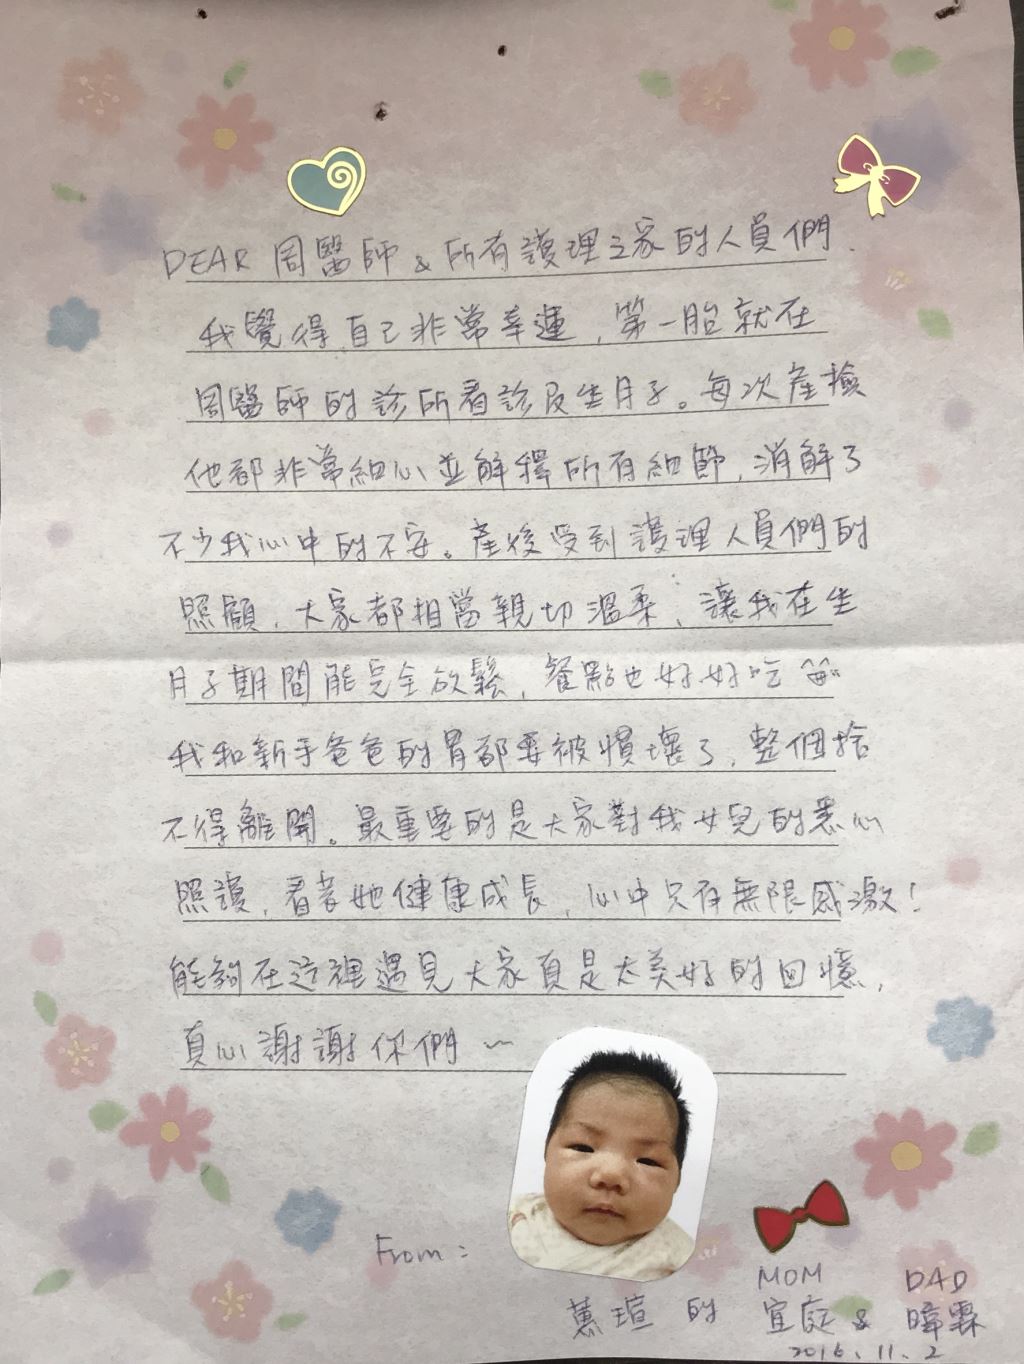 DEAR 周醫師 & 所有護理之家的人員們.
我覺得自己非常幸運,第一胎就在
周醫師的診所看診及坐月子。每次產檢
他都非常細心並解釋所有細節,消解了
不少我心中的不安。產後受到護理人員們的
照顧,大家都相當親切溫柔,讓我在坐
月子期間能完全放鬆,餐點也好好吃
我和新手爸爸的胃都要被慣壞了,整個捨
不得離開。最重要的是大家對我女兒的悉心
照護,看著她健康成長,心中只有無限感激!
能夠在這裡遇見大家真是太美好的回憶,
真心謝謝你們~
From:
MOM DAD
蕙瑄 的 宜庭 & 暐霖
2016.11.2